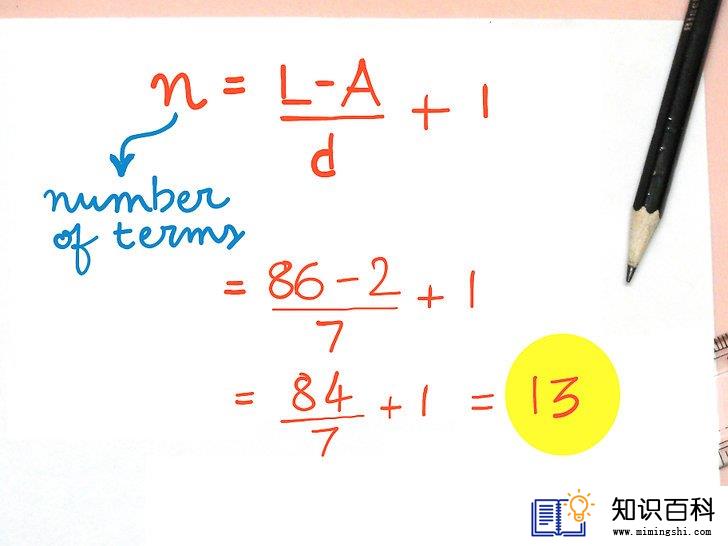 n = L-A/d + 1
number
of terms
= 86-2/7 + 1
= 84/7 + 1 = 13
知识百科
www.mimingshi.com